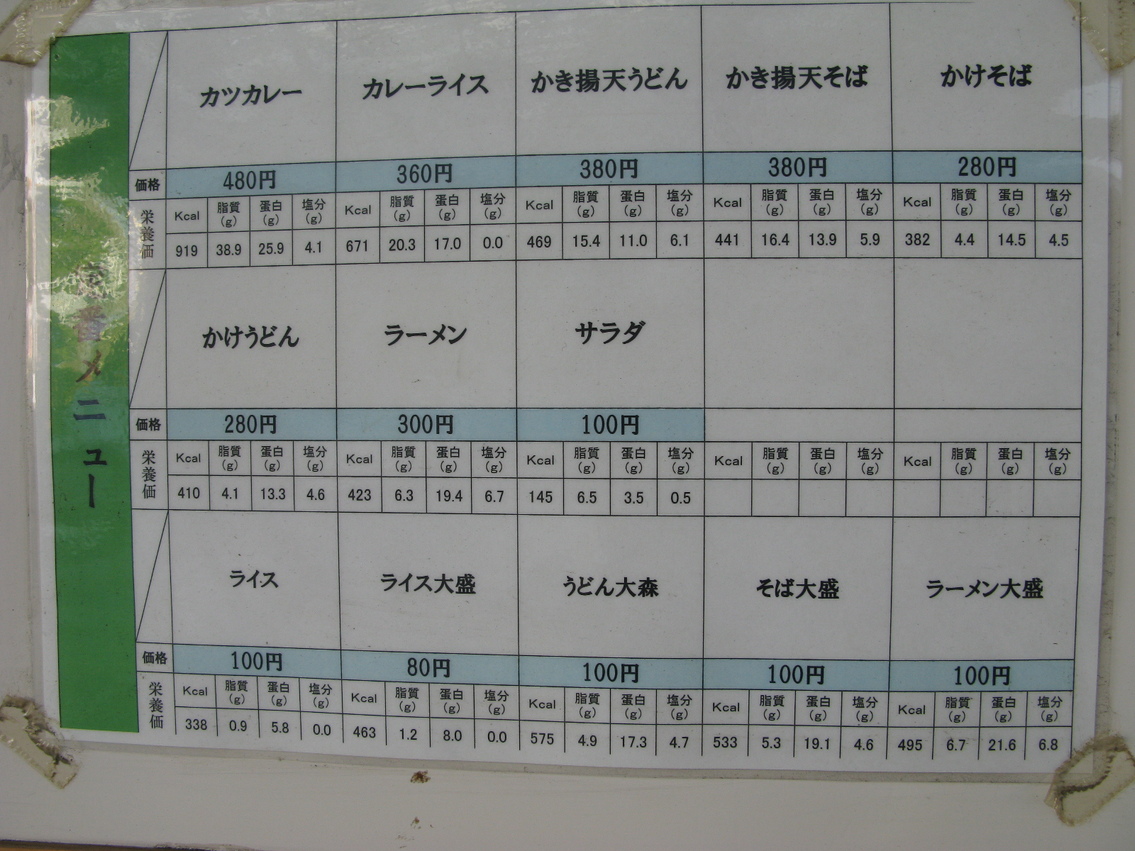 定番メニュー
カツカレー カレーライス かき揚天うどん かき揚天そば かけそば
価格 480円 360円 380円 380円 280円
栄養価 Kcal 脂質(g) 蛋白(g) 塩分(g) Kcal 脂質(g) 蛋白(g) 塩分(g) Kcal 脂質(g) 蛋白(g) 塩分(g) Kcal 脂質(g) 蛋白(g) 塩分(g) Kcal 脂質(g) 蛋白(g) 塩分(g)
919 38.9 25.9 4.1 671 20.3 17.0 0.0 469 15.4 11.0 6.1 441 16.4 13.9 5.9 382 4.4 14.5 4.5
かけうどん ラーメン サラダ
価格 280円 300円 100円
栄養価 Kcal 脂質(g) 蛋白(g) 塩分(g) Kcal 脂質(g) 蛋白(g) 塩分(g) Kcal 脂質(g) 蛋白(g) 塩分(g) Kcal 脂質(g) 蛋白(g) 塩分(g) Kcal 脂質(g) 蛋白(g) 塩分(g)
410 4.1 13.3 4.6 423 6.3 19.4 6.7 145 6.5 3.5 0.5
ライス ライス大盛 うどん大森 そば大盛 ラーメン大盛
価格 100円 80円 100円 100円 100円
栄養価 Kcal 脂質(g) 蛋白(g) 塩分(g) Kcal 脂質(g) 蛋白(g) 塩分(g) Kcal 脂質(g) 蛋白(g) 塩分(g) Kcal 脂質(g) 蛋白(g) 塩分(g) Kcal 脂質(g) 蛋白(g) 塩分(g)
338 0.9 5.8 0.0 463 1.2 8.0 0.0 575 4.9 17.3 4.7 533 5.3 19.1 4.6 495 6.7 21.6 6.8